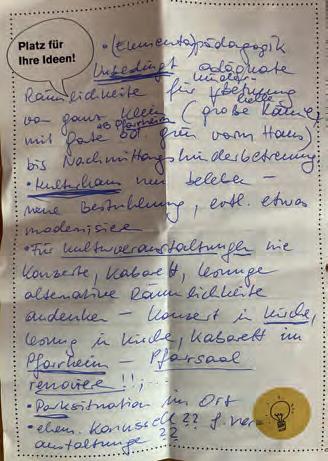 Platz für
Ihre Ideen!
• (Elementar)pädagogik
Unbedingt adäquate
Räumlichkeite für
von ganz klein (große Räume,
mit Garte od. grün vorm Haus)
bis Nachmittagskinderbetreuung
• Kulturhaus neu beleben –
neue Bestuhlung, evtl. etwas
modernisiere
• Für Kulturveranstaltungen wie
Konzerte, Kabarett, Lesunge
alternative Räumlichkeite
andenken – Konzert in Kirche,
Lesung in Kirche, Kabarett im
Pfarrheim – Pfarrsaal
renoviere !!;
• Parksituation im Ort
• ehem. ?? f. Ver-
anstaltunge ??